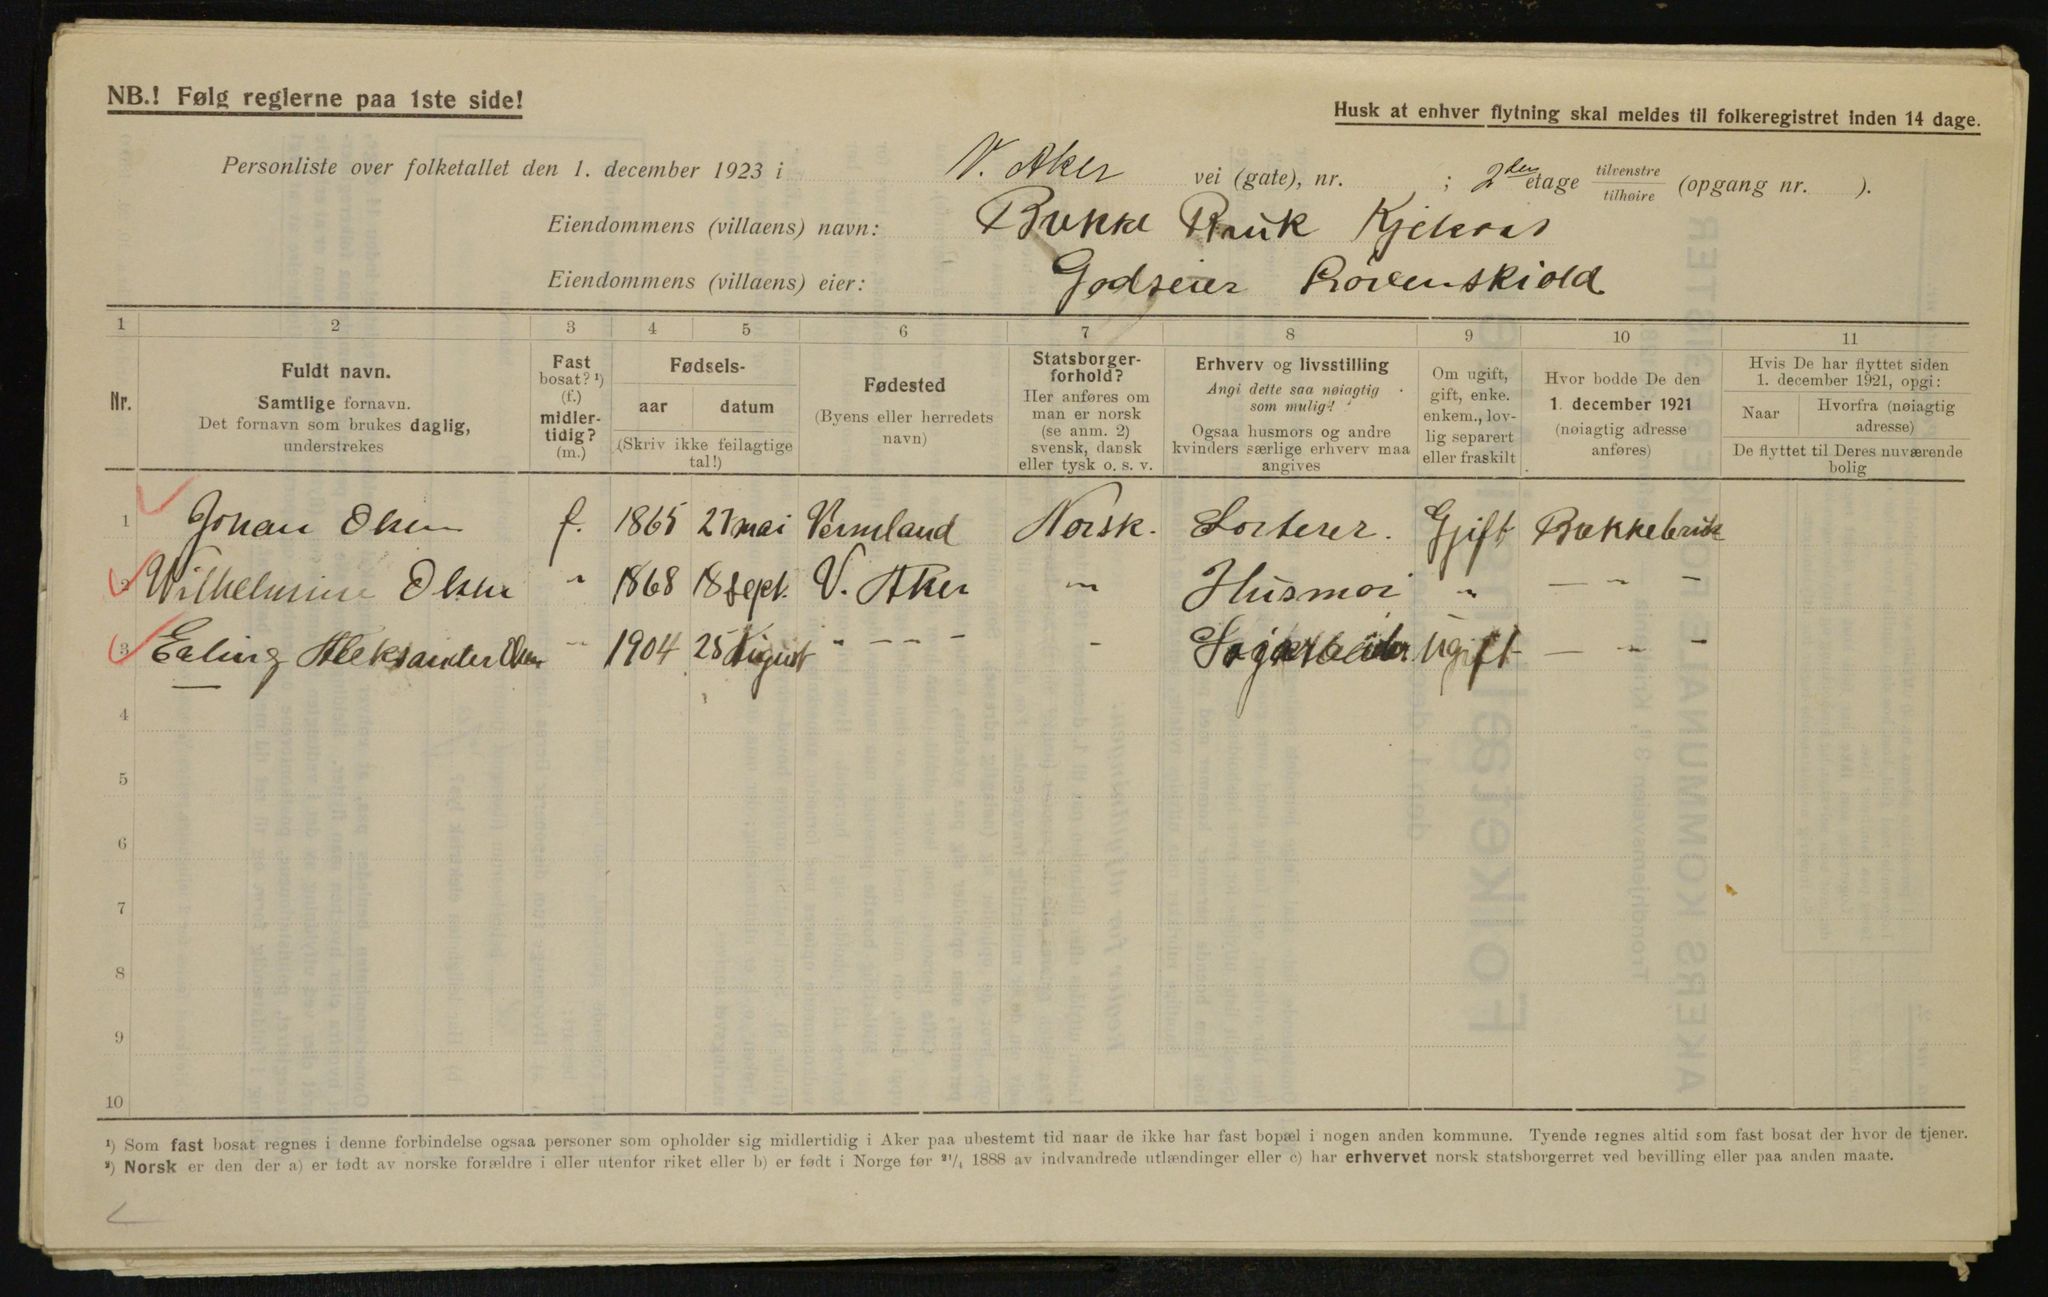 NB.! Følg reglerne paa 1ste side!
Husk at enhver flytning skal meldes til folkeregistret inden 14 dage.
Personliste over folketallet den 1. december 1923 i V. Aker vei (gate), nr. ; 2den etage tilvenstre tilhøire (opgang nr. ).
Eiendommens (villaens) navn: Bakke Bruk Kjelsaas
Eiendommens (villaens) eier: Godseier Løvenskiold
1 2 3 4 5 6 7 8 9 10 11
Nr.
Fuldt navn.
Samtlige fornavn.
Det fornavn som brukes daglig,
understrekes
Fast
bosat? ¹)
(f.)
midler-
tidig?
(m.)
Fødsels-
aar datum
(Skriv ikke feilagtige
tal!)
Fødested
(Byens eller herredets
navn)
Statsborger-
forhold?
Her anføres om
man er norsk
(se anm. 2)
svensk, dansk
eller tysk o. s. v.
Erhverv og livsstilling
Angi dette saa nøiagtig
som mulig!
Ogsaa husmors og andre
kvinders særlige erhverv maa
angives
Om ugift,
gift, enke.
enkem., lov-
lig separert
eller fraskilt
Hvor bodde De den
1. december 1921
(nøiagtig adresse
anføres)
Hvis De har flyttet siden
1. december 1921, opgi:
Naar Hvorfra (nøiagtig
adresse)
De flyttet til Deres nuværende
bolig
1 Johan Olsen f. 1865 21 mai Vermland Norsk. Sorterer. Gift Bakkebruk
2 Wilhelmine Olsen " 1868 18 sept. V. Aker " Husmor " — " —
3 Erling Aleksander Olsen " 1904 25 August " — — — " Ugift — " —
4
5
6
7
8
9
10
¹) Som fast bosat regnes i denne forbindelse ogsaa personer som opholder sig midlertidig i Aker paa ubestemt tid naar de ikke har fast bopæl i nogen anden kommune. Tyende regnes altid som fast bosat der hvor de tjener.
²) Norsk er den der a) er født av norske forældre i eller utenfor riket eller b) er født i Norge før ²¹/₄ 1888 av indvandrede utlændinger eller c) har erhvervet norsk statsborgerret ved bevilling eller paa anden maate.